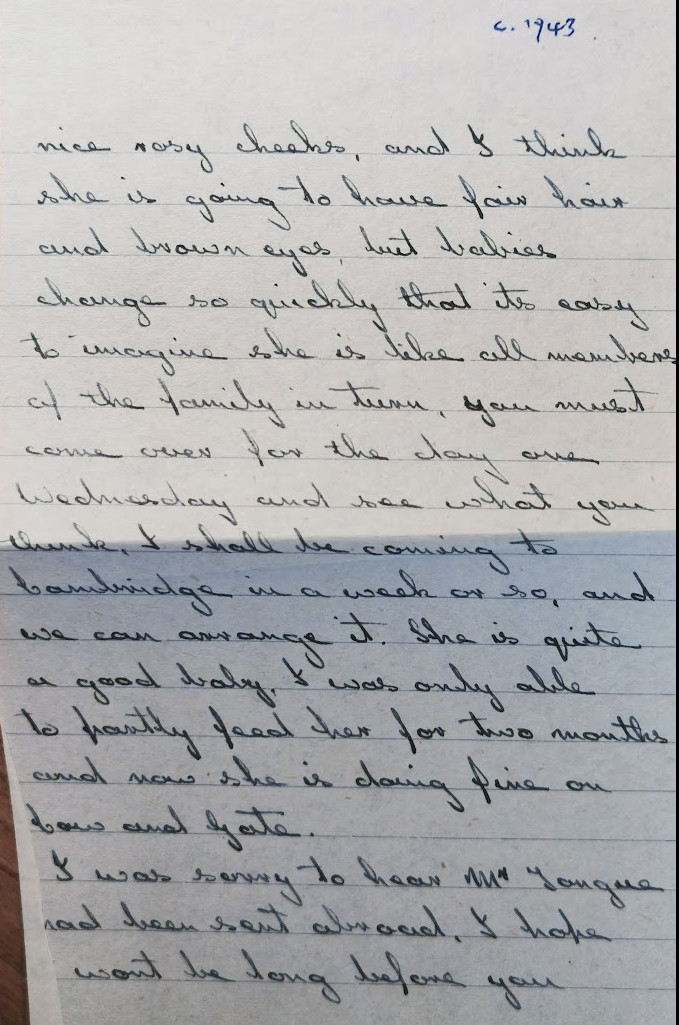 c. 1943
nice rosy cheeks, and I think
she is going to have fair hair
and brown eyes, but babies
change so quickly that its easy
to imagine she is like all members
of the family in turn, you must
come over for the day one
Wednesday and see what you
think, I shall be coming to
Cambridge in a week or so, and
we can arrange it. She is quite
a good baby, I was only able
to partly feed her for two months
and now she is doing fine on
Cow and Gate.
I was sorry to hear Mr Tongue
had been sent abroad, I hope
wont be long before you